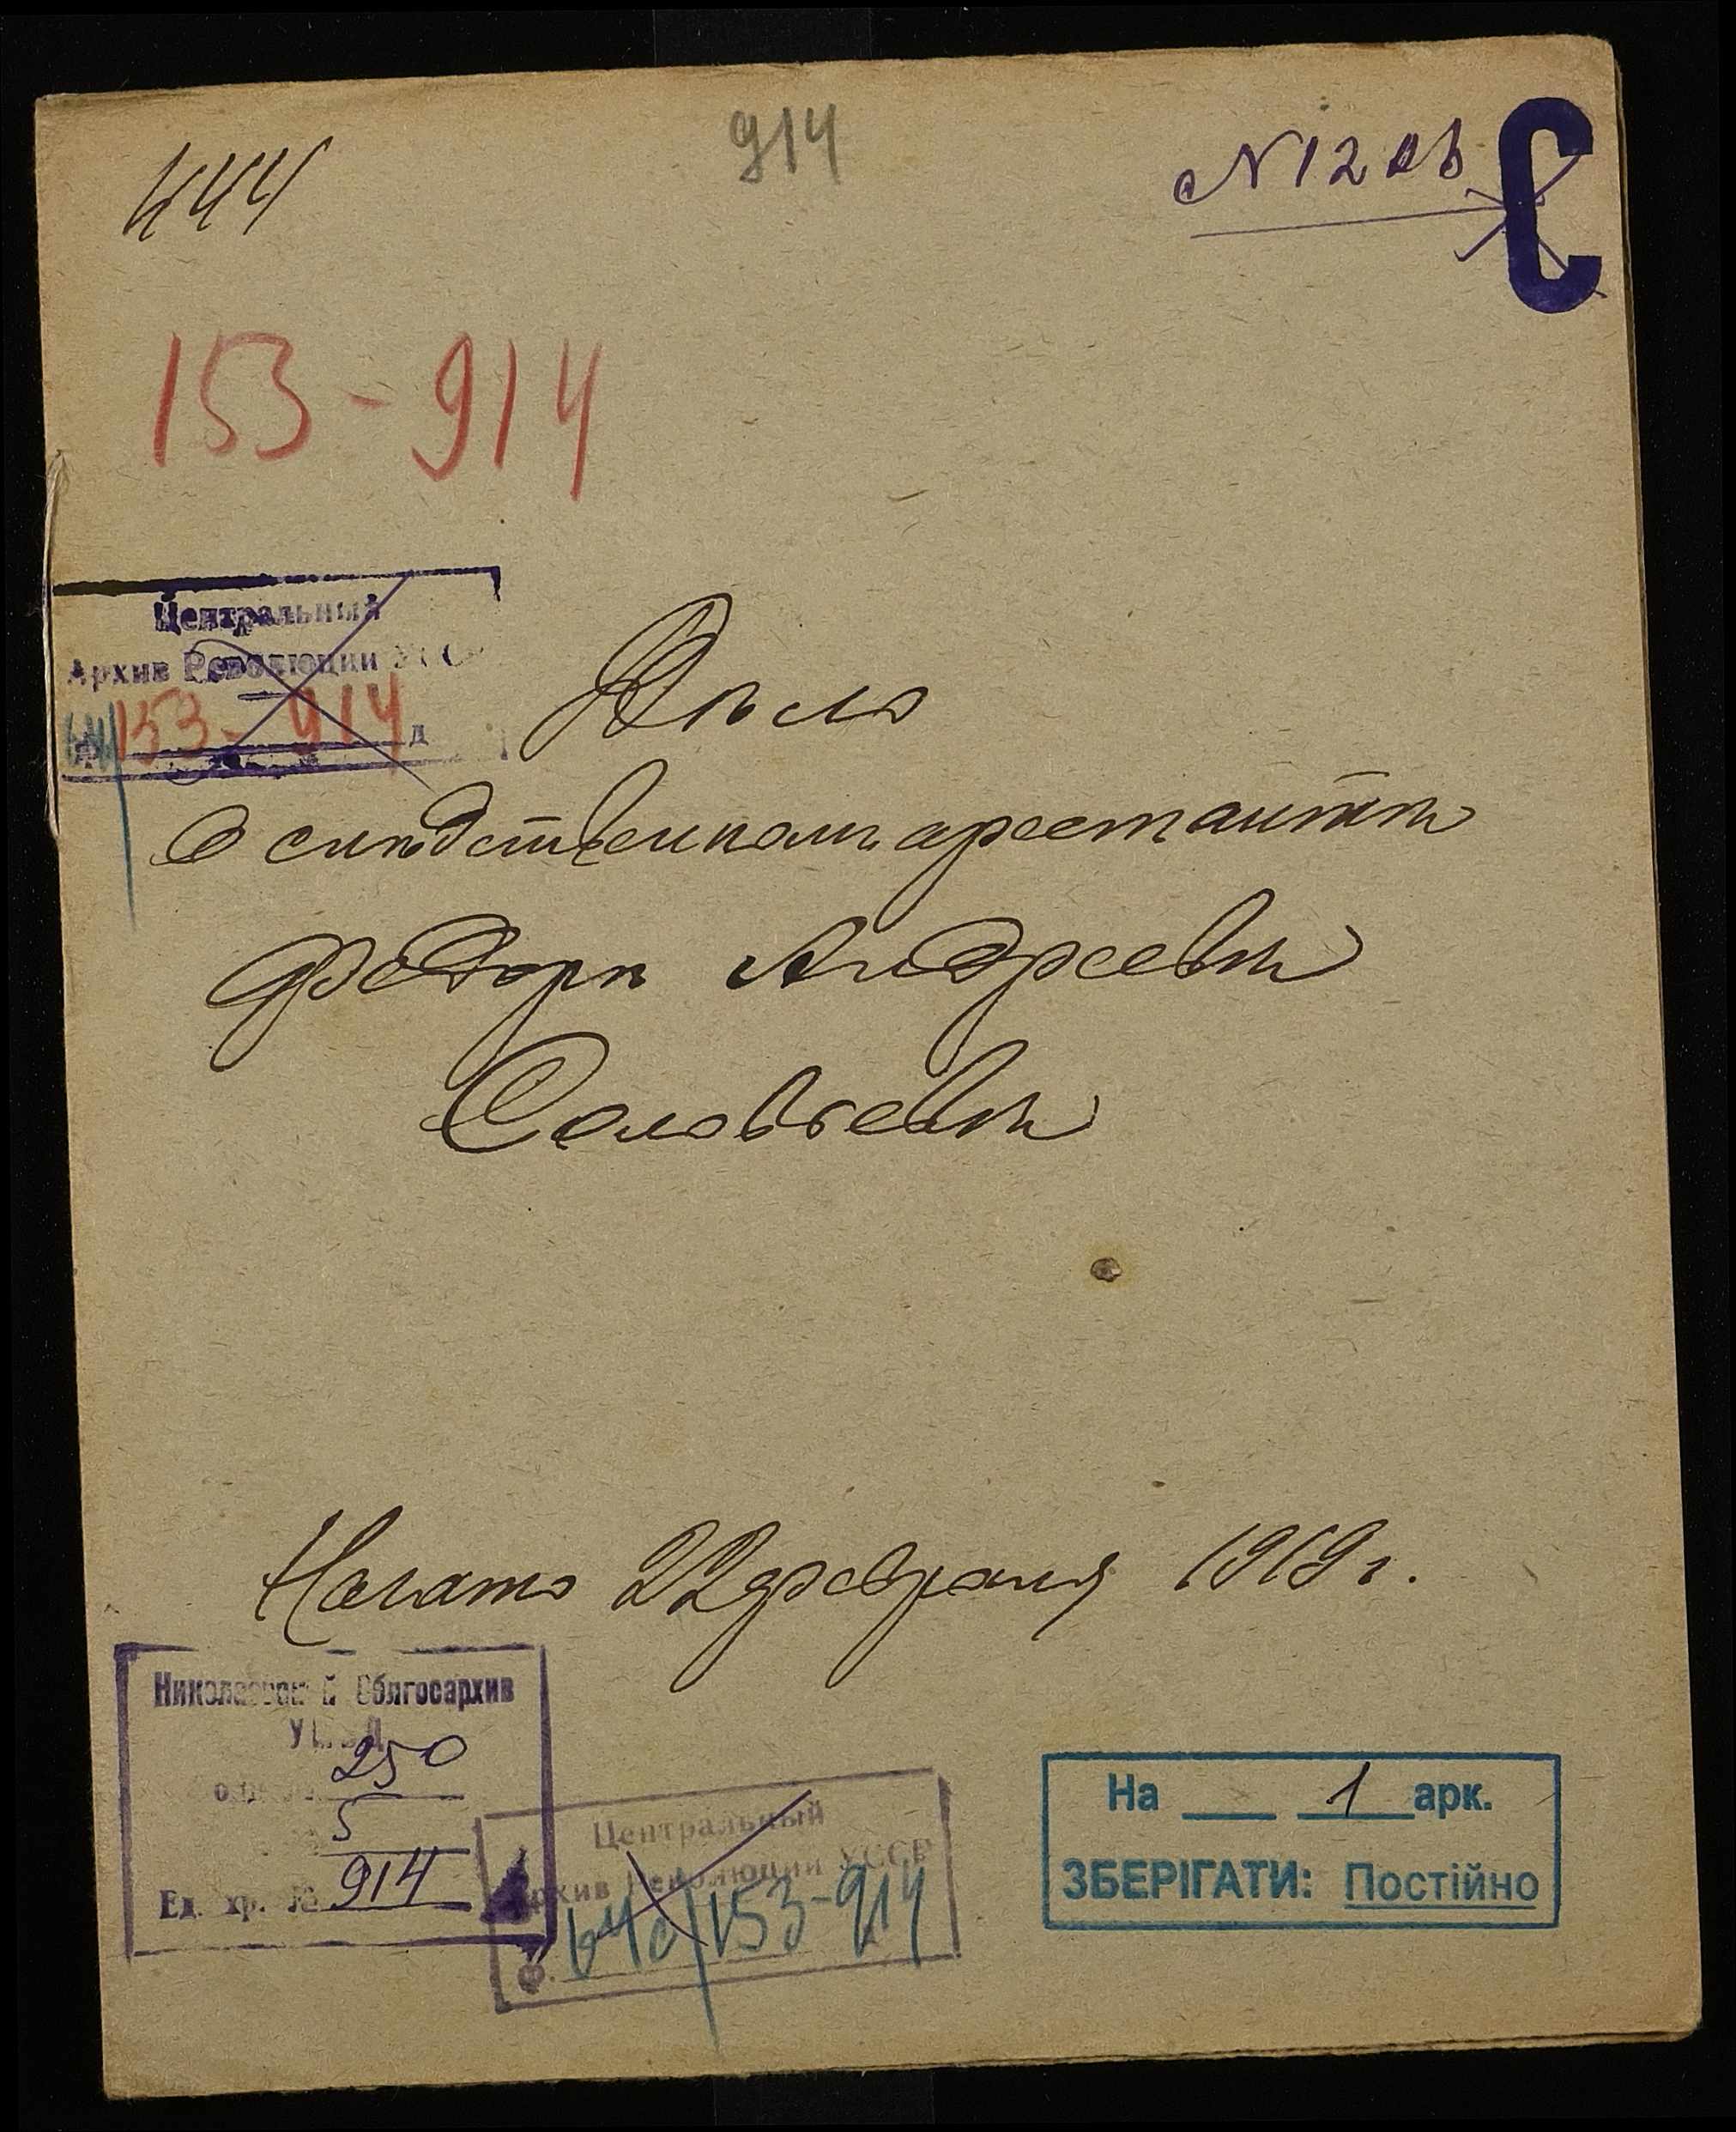 444
914
С
153-914
Центральный
Архив Революции УССР
153-914 д
Дѣло
О слѣдственномъ арестантѣ
Федорѣ Андреевѣ
Соловьевѣ
Начато 22 февраля 1919 г.
Николаевский Облгосархив
250
5
Ед. хр. № 914
Центральный
Архив Революции УССР
Ф. 64с/153-914
На 1 арк.
ЗБЕРІГАТИ: Постійно